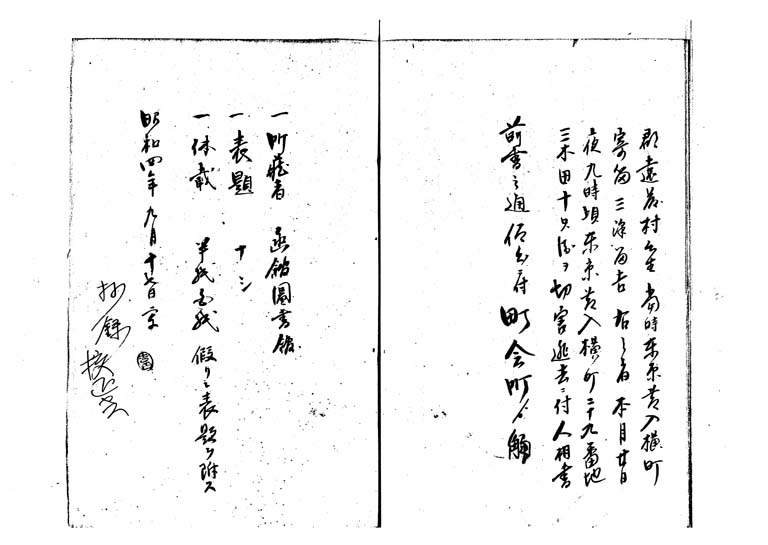 郡遠営村出生当時東京黄入横町
寄留三澤留吉右之者本月廿日
夜九時頃東京黄入横町二十九番地
三木田十兵衛ヲ切害逃去ニ付人相書
前書之通伯出府町会町々触
一所蔵者 函館図書館
一表題 ナシ
一体裁 半紙白紙 仮リニ表題ヲ附ス
昭和四年九月十七日写
抄録